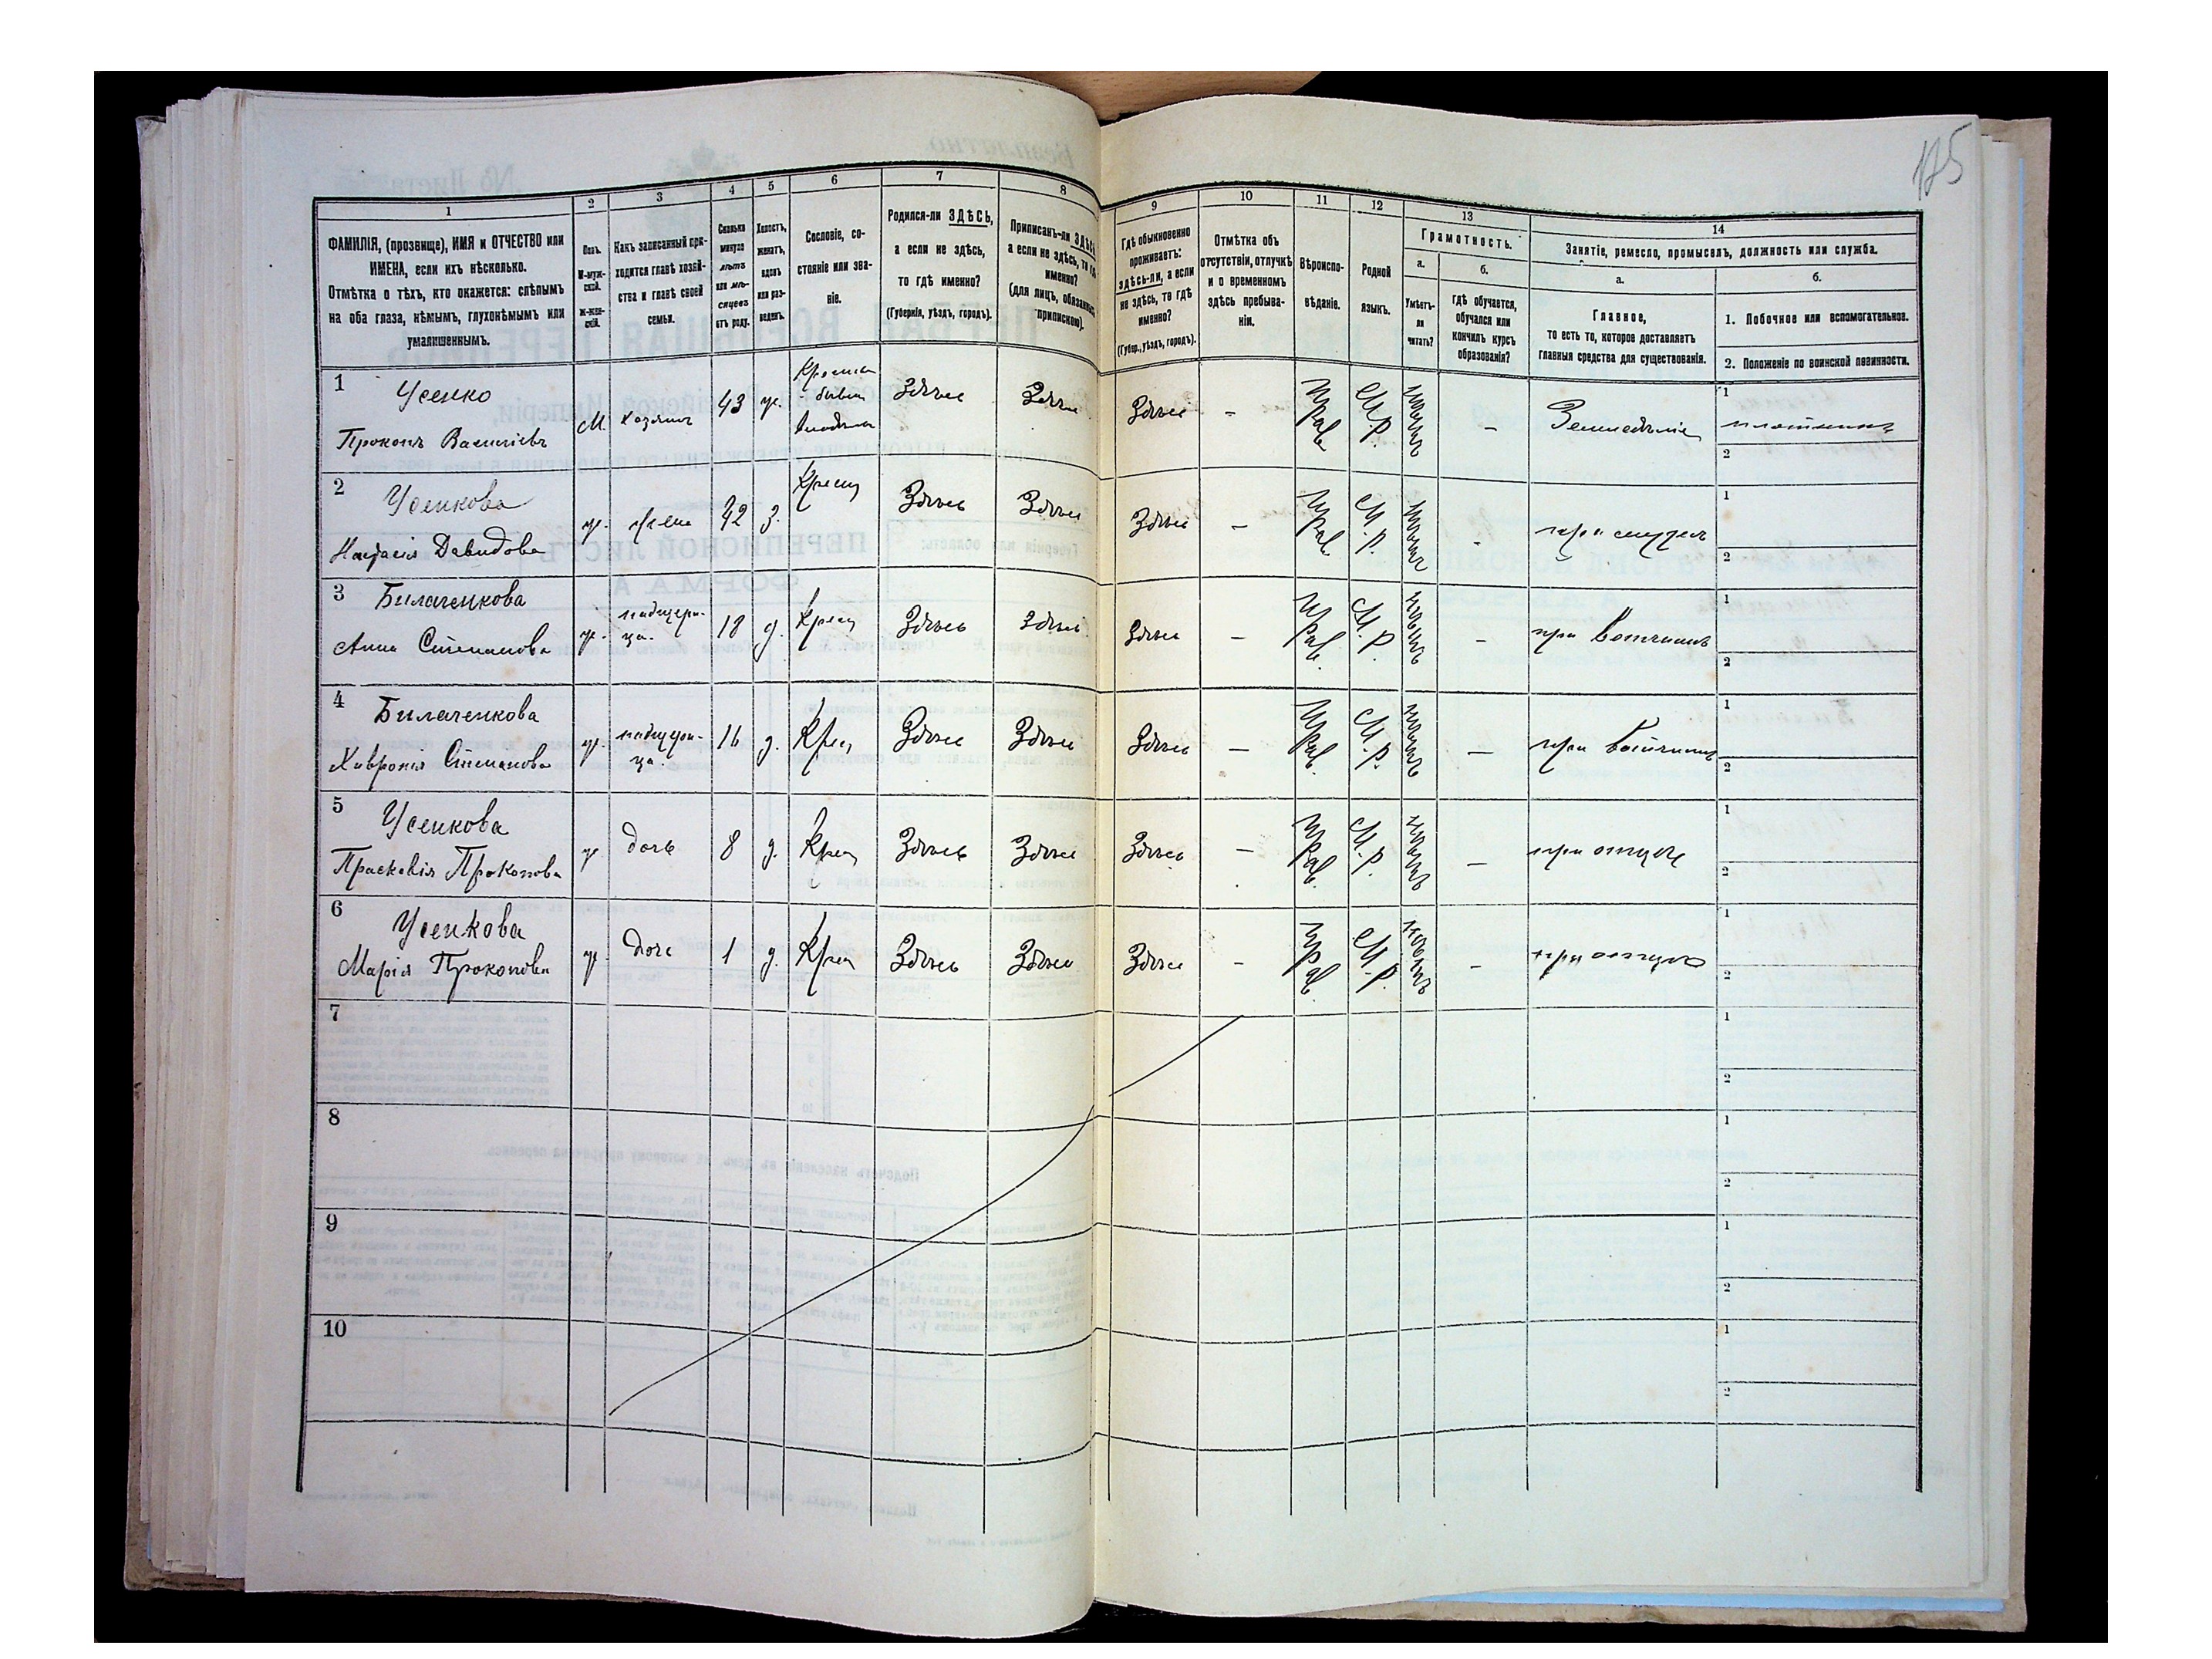 175
1
2
3
4
5
6
7
8
9
10
11
12
13
14
ФАМИЛІЯ, (прозвище), ИМЯ и ОТЧЕСТВО или
ИМЕНА, если ихъ нѣсколько.
Отмѣтка о тѣхъ, кто окажется: слѣпымъ
на оба глаза, нѣмымъ, глухонѣмымъ или
умалишеннымъ.
Полъ.
М-муж-
ской.
ж-жен-
скій.
Какъ записанный при-
ходится главѣ хозяй-
ства и главѣ своей
семьи.
Сколько
минуло
лѣтъ
или мѣ-
сяцевъ
отъ роду.
Холостъ,
женатъ,
вдовъ
или раз-
веденъ.
Сословіе, со-
стояніе или зва-
ніе.
Родился-ли ЗДѢСЬ,
а если не здѣсь,
то гдѣ именно?
(Губернія, уѣздъ, городъ).
Приписанъ-ли ЗДѢСЬ
а если не здѣсь, то гдѣ
именно?
(для лицъ, обязанныхъ
припискою).
Гдѣ обыкновенно
проживаетъ:
здѣсь-ли, а если
не здѣсь, то гдѣ
именно?
(Губер., уѣздъ, городъ).
Отмѣтка объ
отсутствіи, отлучкѣ
и о временномъ
здѣсь пребыва-
ніи.
Вѣроиспо-
вѣданіе.
Родной
языкъ.
Грамотность.
а.
Умѣетъ-
ли
читать?
б.
гдѣ обучается,
обучался или
кончилъ курсъ
образованія?
Занятіе, ремесло, промыселъ, должность или служба.
а.
Главное,
то есть то, которое доставляетъ
главныя средства для существованія.
б.
1. Побочное или вспомогательное.
2. Положеніе по воинской повинности.
1 Усенко
Прокопъ Васильевъ
М. Хозяинъ 43 ж. Здѣсь Здѣсь Здѣсь - Прав М.Р. - Земледѣліе
1
2
2 Усенкова
Настасія Давидова
ж. жена 42 з. Крест Здѣсь Здѣсь Здѣсь - Прав. М.Р. -
1
2
3 Билаченкова
Анна Степанова
ж. падчери-
ца. 18 д. Крест Здѣсь Здѣсь Здѣсь - Прав. М.Р. - при Вотчимѣ
1
2
4 Билаченкова
Хавронія Степанова
ж. падчери-
ца. 16 д. Крест Здѣсь Здѣсь Здѣсь - Прав. М.Р. - при Вотчимѣ
1
2
5 Усенкова
Прасковія Прокопова
ж дочь 8 д. Крест Здѣсь Здѣсь Здѣсь - Прав. М.Р. - при отцѣ
1
2
6 Усенкова
Марія Прокопова
ж. дочь 1 д. Крест Здѣсь Здѣсь Здѣсь - Прав. М.Р. - при отцѣ
1
2
7
1
2
8
1
2
9
1
2
10
1
2